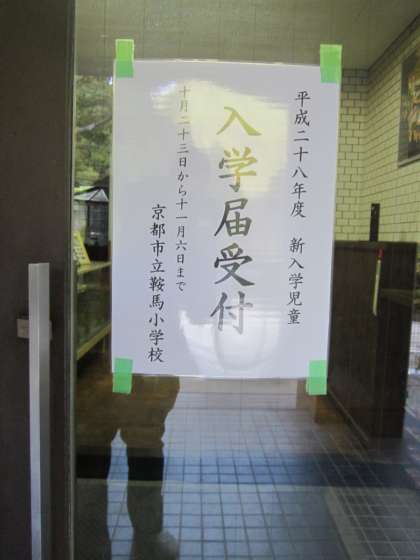 平成二十八年度 新入学児童
入学届受付
十月二十三日から十一月六日まで
京都市立鞍馬小学校